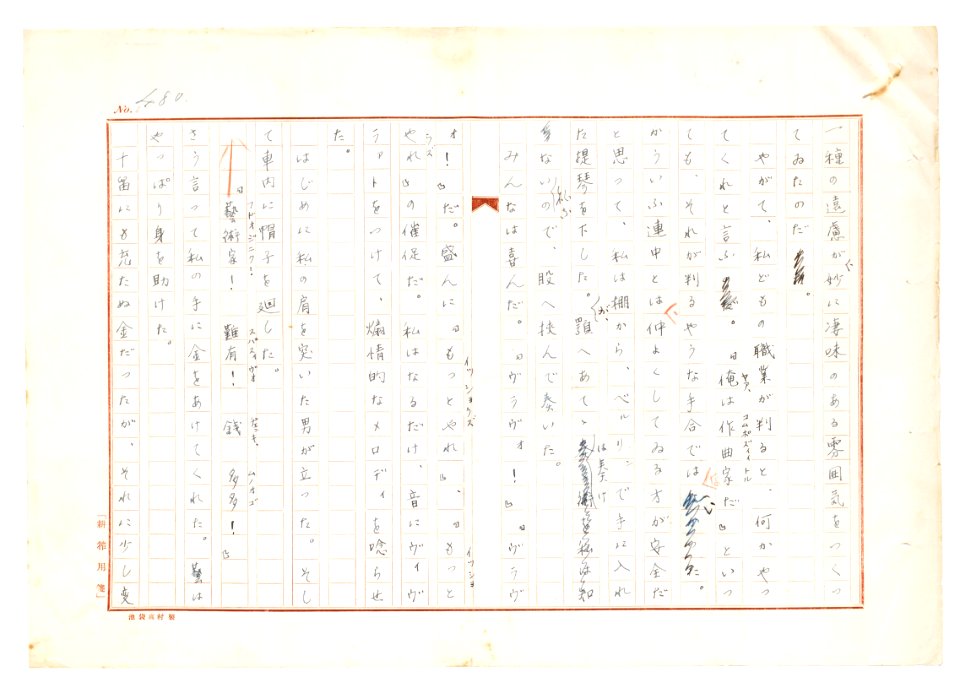 No. 480
一種の遠慮が妙に凄味のある雰囲気をつくつ
てゐたのだ。
やがて、私どもの職業が判ると、何かやつ
てくれと言ふ。『俺は作曲家だ』といつ
ても、それが判るやうな手合ではない。
かういふ連中とは仲よくしてゐる方が安全だ
と思つて、私は棚から、ベルリンで手に入れ
た提琴を下した。が、顎へあてゝは奏け
ないので、股へ挟んで奏いた。
みんなは喜んだ。『ヴラヴォ!』『ヴラヴ
オ!』だ。盛んに『もつとやれ』、『もつと
やれ』の催促だ。私はなるだけ、音にヴィヴ
ラァトをつけて、煽情的なメロディを唸らせ
た。
はじめに私の肩を突いた男が立つた。そし
て車内に帽子を廻した。
『藝術家! 難有! 銭 多多!』
さう言つて私の手に金をあけてくれた。藝は
やつぱり身を助けた。
十留にも充たぬ金だつたが、それに少し変
「新稿用箋」